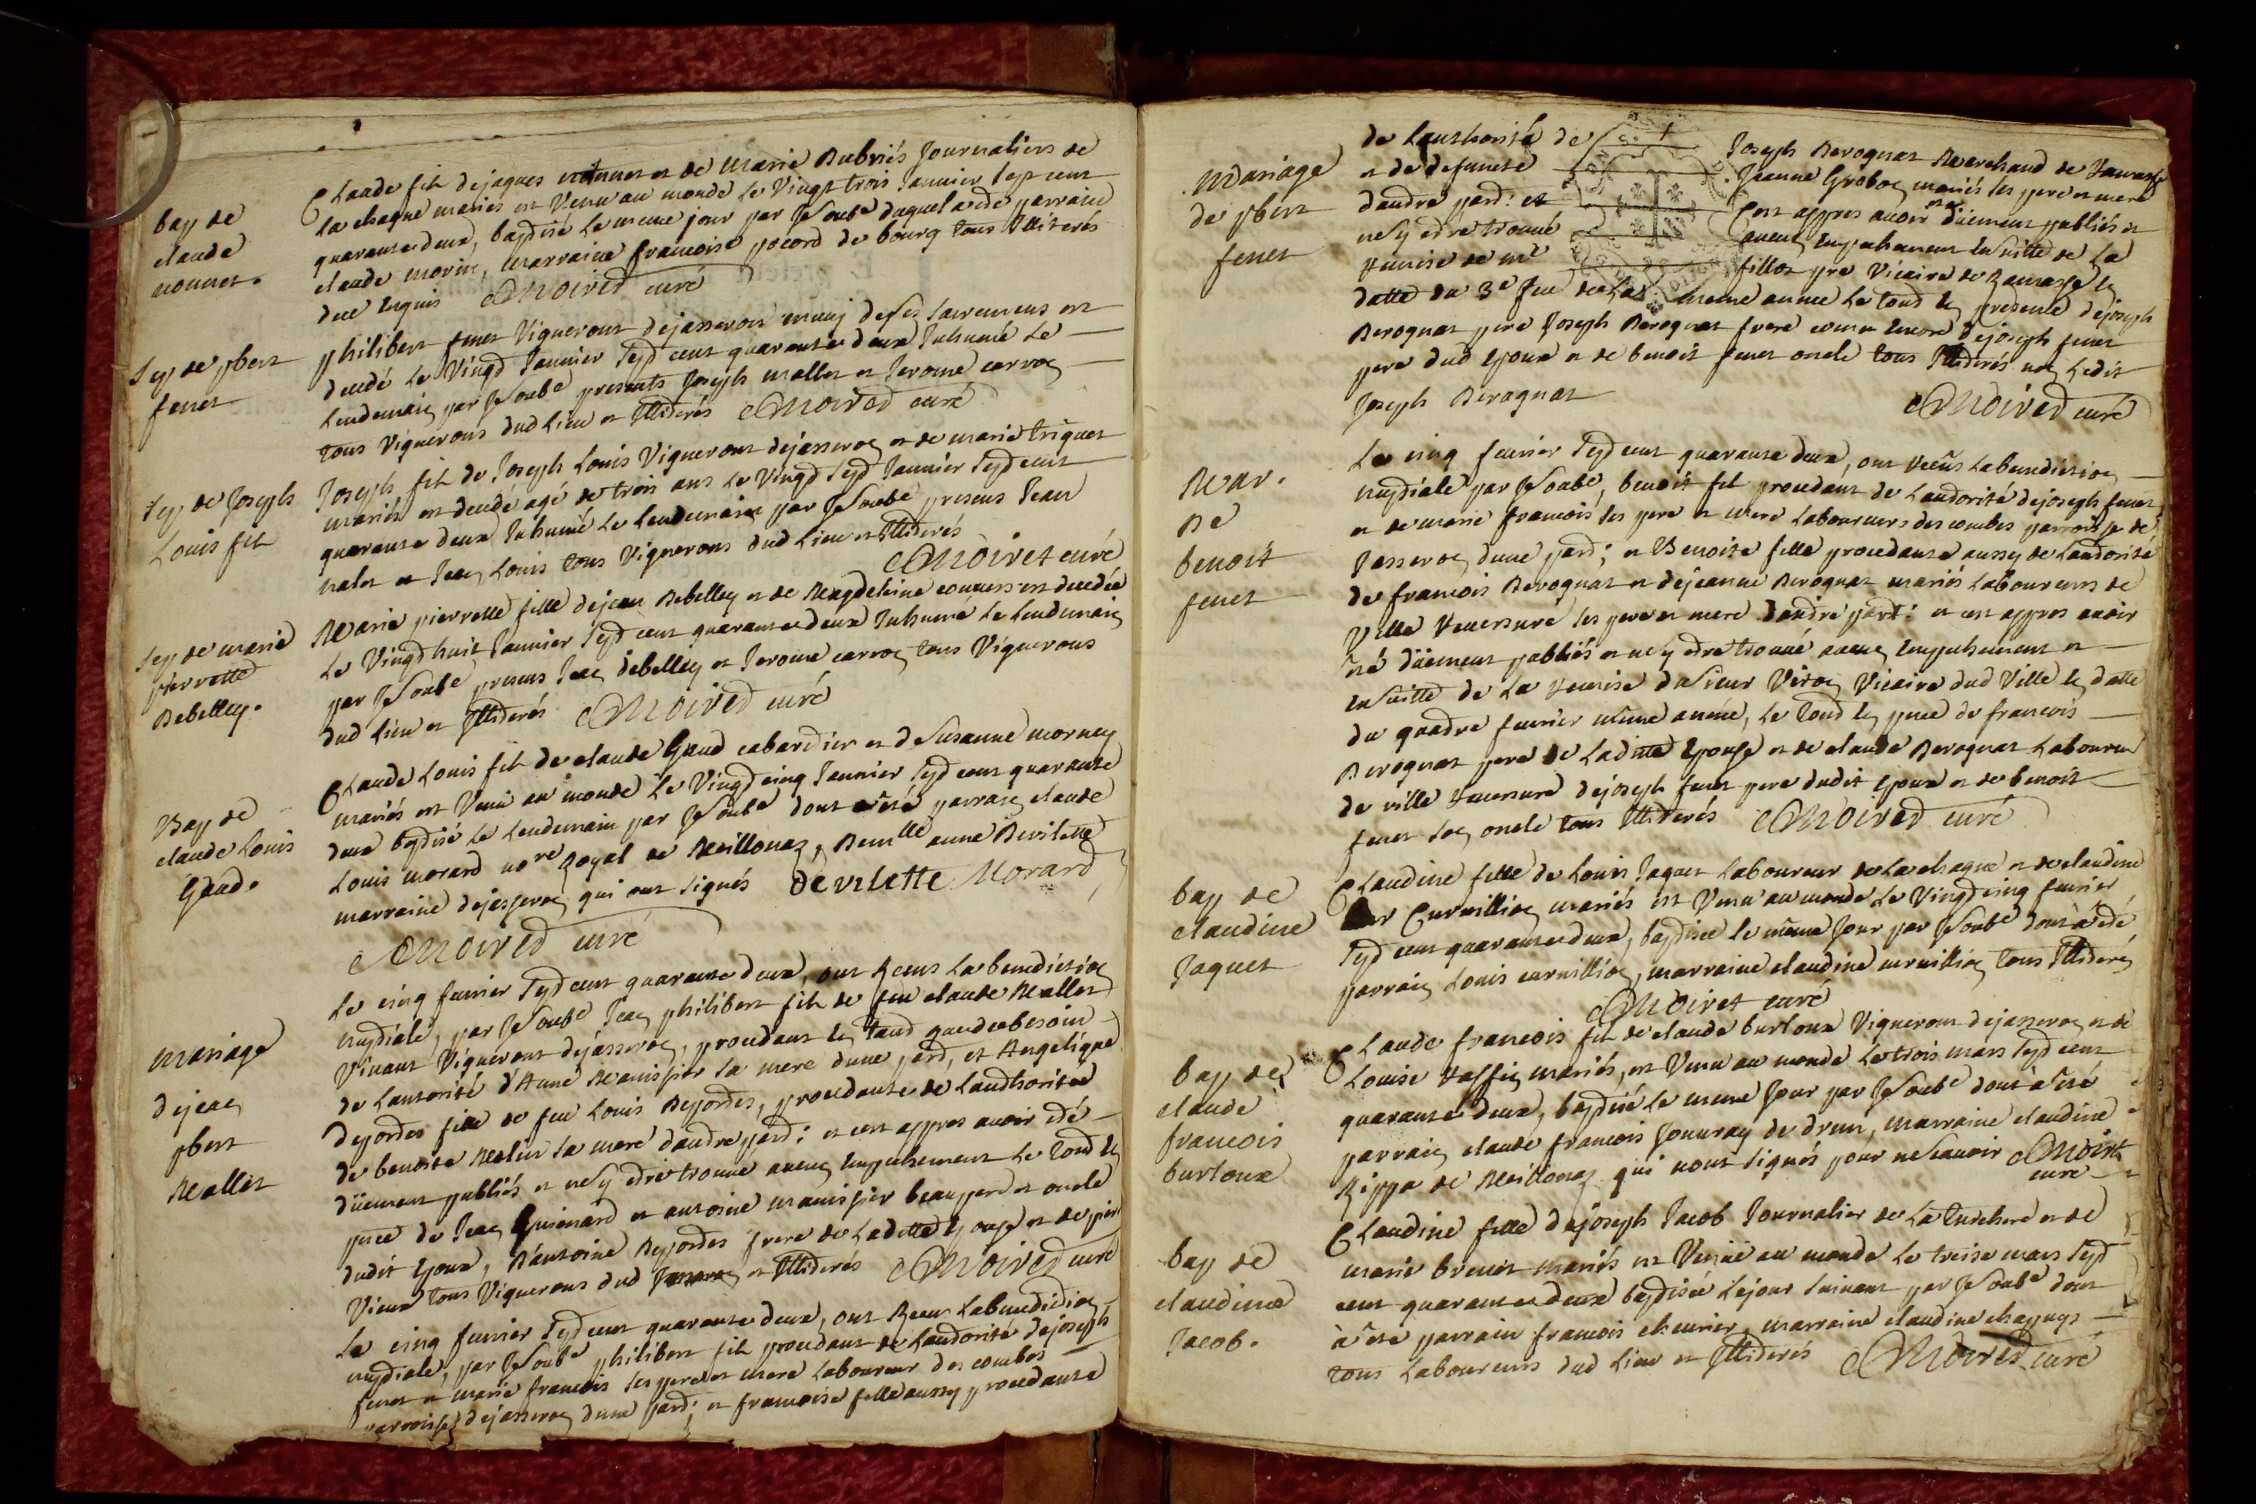 bap de
claude
nonnet.
Claude fils dejaques nonnet et de Marie Aubriés Journaliers de
la chagne mariés est Venu au monde le Vingt trois Janvier sept cent
quarante deux, baptisé le meme jour par Je soubé duquel a ete parrain
claude morin, marraine francoise pocord de bourg tous Illiterés
due enquis Moiret curé
sep de pbert
fenet
philibert fenet Vigneront dejasseron muny de ses sacremens est
decedé le Vingt Janvier sept cent quarante deux Inhumé le
lendemain par Je soubé presents Joseph mallet et Jerome carron
tous Vignerons dud lieu et Illiterés Moiret curé
sep de Joseph
Louis fils
Joseph fils de Joseph Louis Vigneront dejasseron et de marie triquet
mariés est decede agé de trois ans le Vingt sept Janvier sept cent
quarante deux Inhumé le lendemain par Je soubé presens Jean
nalet et Jean Louis tous Vignerons dud lieu et Illiterés
Moiret curé
sep de marie
pierrette
Debelley.
Marie pierrette fille dejean Debelley et de Magdeleine est decedée
le Vingt huit Janvier sept cent quarante deux Inhumé le lendemain
par Je soubé presens Jean debelley et Jerome carron tous Vignerons
dud lieu et Illiterés Moiret curé
Bap de
claude Louis
Gaud.
Claude Louis fils de claude Gaud cabartier et de Susanne mornay
mariés est Venu au monde le Vingt cinq Janvier sept cent quarante
deux baptisé le lendemain par Je soubé dont a été parrain claude
Louis morard nore Royal de Meillonaz, Demlle anne Devilette
marraine dejasseron qui ont signés De vilette Morard
Moiret curé
mariage
dejean
pbert
Mallet
le cinq fevrier sept cent quarante deux, ont Receus la benediction
nuptiale, par Je soubé Jean philibert fils de feu claude Mallet
Vivant Vigneront dejasseron, procedant en tant que de besoin
de lautorité d'Anne Manissier sa mere dune part, et Angelique
dejordes fille de feu Louis Dejordes, procedante de lauthoritée
de benoite Melin sa mere dautre part: et cest appres avoir eté
düement publiés et ne sy etre trouvé aucun Empechement le tout en
pnce de Jean Guinard et antoine manissier beaupere et oncle
dudit Epoux, D'antoine Dejordes frere de la ditte Epouse et de
Vieux tous Vignerons dud Jasseron et Illiterés Moiret curé
Le cinq fevrier sept cent quarante deux, ont Receus la benediction
nuptiale, par Je soubé philibert fils procedant de lautorité dejoseph
fenet et marie francois ses pere et mere laboureur des combes
parroisse dejasseron dune part; et francoise fille aussy procedante
mariage
de pbert
fenet
de lauthorité de Joseph Berognat Marchand de
et de defuncte Jeanne Grobon mariés ses pere et mere
dautre part: et Cest appres avoir eté düement publiés et
ne sy etre trouvé aucun Empechement Ensuitte de la
remise de mre fillot pre Vicaire de Ramasse en
datte du 3e feu de la meme annee le tout en presence dejoseph
Berognat pere Joseph Berognat frere comm encore dejoseph fenet
pere dud Epoux et de benoit fenet oncle tous Illiterés non ledit
Joseph Berognat
Moiret curé
Mar.
De
benoit
fenet
Le cinq fevrier sept cent quarante deux, ont receûs la benediction
nuptiale par Je soubé, benoit fils procedant de lautorité dejoseph fenet
et de marie francois ses pere et mere Laboureurs des combes parroisse de
Jasseron dune part; et Benoite fille procedante aussy de lautorité
de francois Berognat et dejeanne Berognat mariés Laboureurs de
Ville reversure ses pere et mere dautre part: et cest appres avoir
été düement publiés et ne sy etre trouvé aucun Empechement et
Ensuitte de la remise du sieur Viron Vicaire dud Ville en datte
du quatre fevrier même annee, le tout en pnce de francois
Berognat pere de la ditte Epouse et de claude Berognat Laboureur
de ville reversure dejoseph fenet pere dudit Epoux et de benoit
fenet son oncle tous Illiterés Moiret curé
bap de
claudine
Jaquet
Claudine fille de Louis Jaquet Laboureur de la chagne et de claudine
Curvillion mariés est Venu au monde le Vingt cinq fevrier
sept cent quarante deux, baptisée le même jour par Je soubé dont a eté
parrain Louis curvillion, marraine claudine curvillion tous Illiterés
Moiret curé
bap de
claude
francois
burtoux
Claude francois fils de claude burtoux Vigneront dejasseron et de
Louise mariés, est Venu au monde le trois mars sept cent
quarante deux, baptisé le meme Jour par Je soubé dont a été
parrain claude francois Jouvray de drom, marraine claudine
Rippe de Meillonaz qui nont signés pour ne scavoir Moiret
curé
bap de
claudine
Jacob.
Claudine fille dejoseph Jacob Journalier de la et de
marie brevet mariés est Venüe au monde le treise mars sept
cent quarante deux baptisée lejour suivant par Je soubé dont
à été parrain francois chevrier, marraine claudine chapuys
tous Laboureurs dud lieu et Illiterés Moiret curé